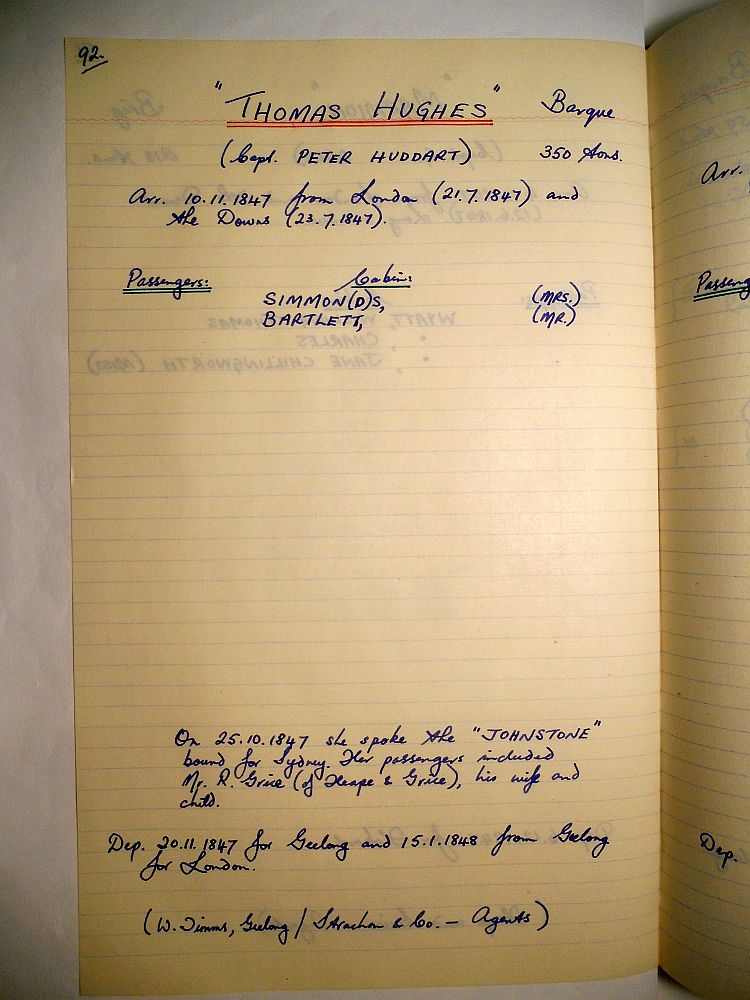 92.
"THOMAS HUGHES" Barque
(Capt. PETER HUDDART) 350 tons.
Arr. 10.11.1847 from London (21.7.1847) and
the Downs (23.7.1847).
Passengers: Cabin:
SIMMON(D)S, (MRS.)
BARTLETT, (MR.)
On 25.10.1847 she spoke the "JOHNSTONE"
bound for Sydney. Her passengers included
Mr. R. Grice (of Heape & Grice), his wife and
child.
Dep. 20.11.1847 for Geelong and 15.1.1848 from Geelong
for London.
(W. Timms, Geelong / Strachan & Co. – Agents)
Arr.
Passeng
Dep.